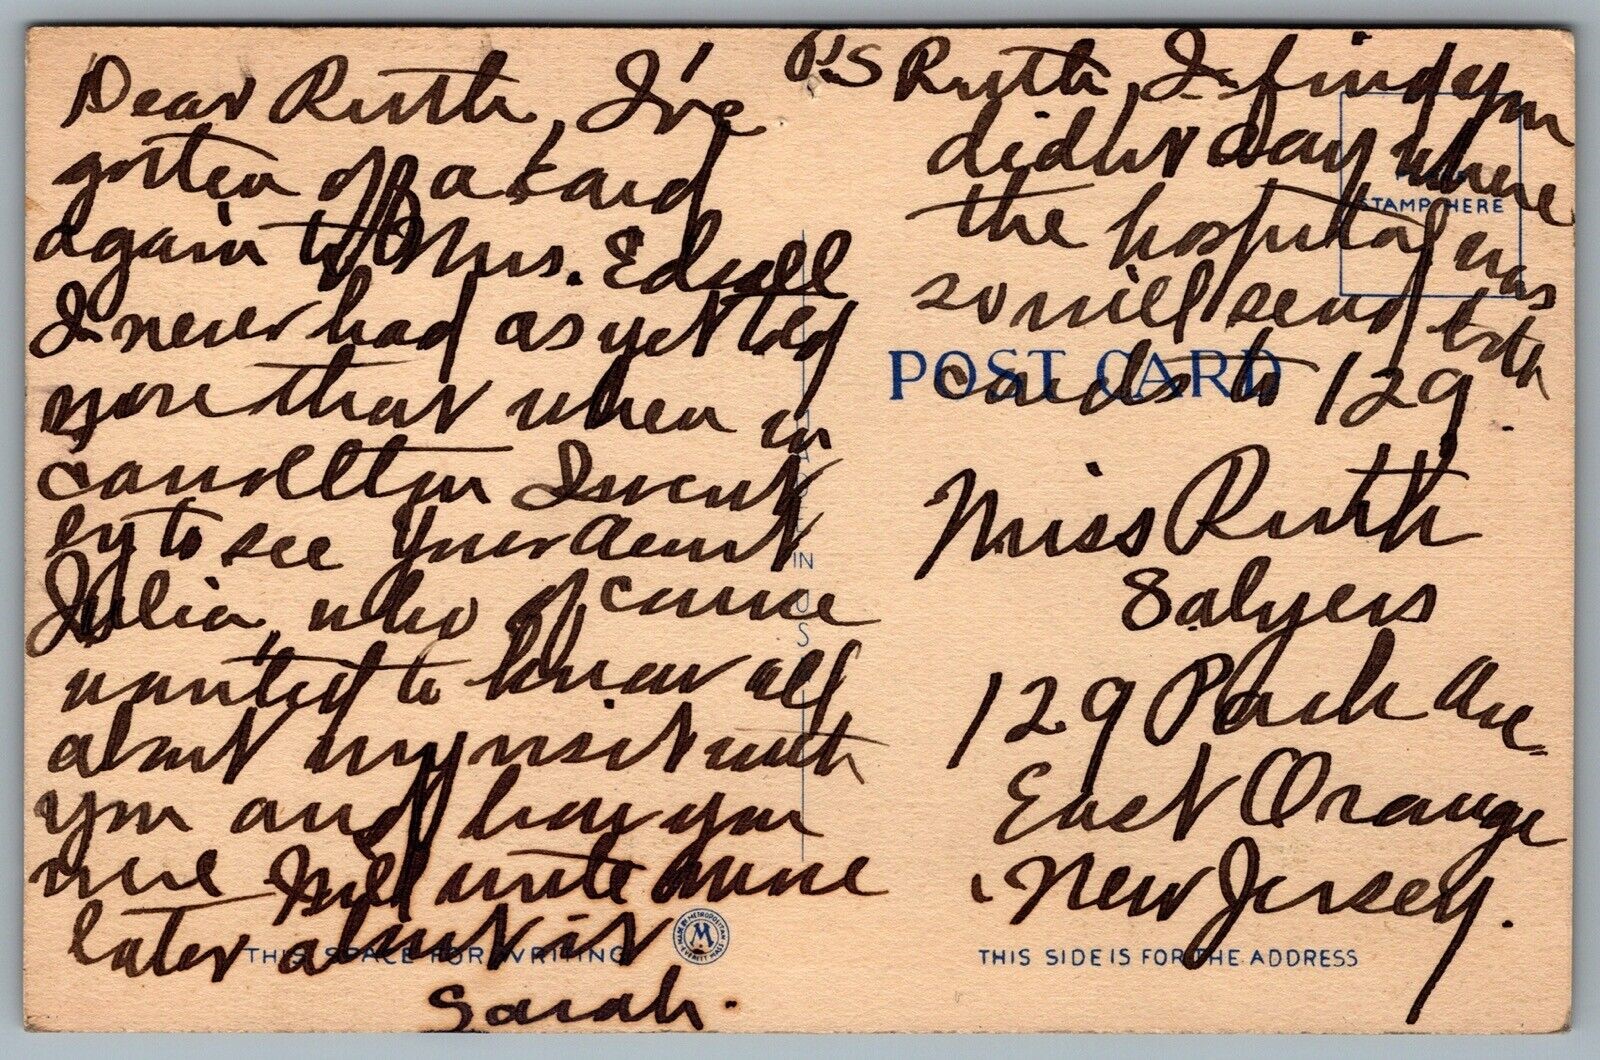 Dear Ruth, I've
gotten off a card
again to Mrs. Edsell
I never had as yet told
you that when in
Carrollton I went
by to see your Aunt
Julia, who of course
wanted to know all
about my visit with
you and how you
were I will write more
later about it
Sarah.
P.S Ruth, I find you
didn't say where
the hospital was
so will send both
cards to 129.
STAMP HERE
POST CARD
Miss Ruth
Salyers
129 Park Ave
East Orange
New Jersey.
MADE IN U S
THIS SPACE FOR WRITING
MADE BY METROPOLITAN
M
EVERETT MASS
THIS SIDE IS FOR THE ADDRESS